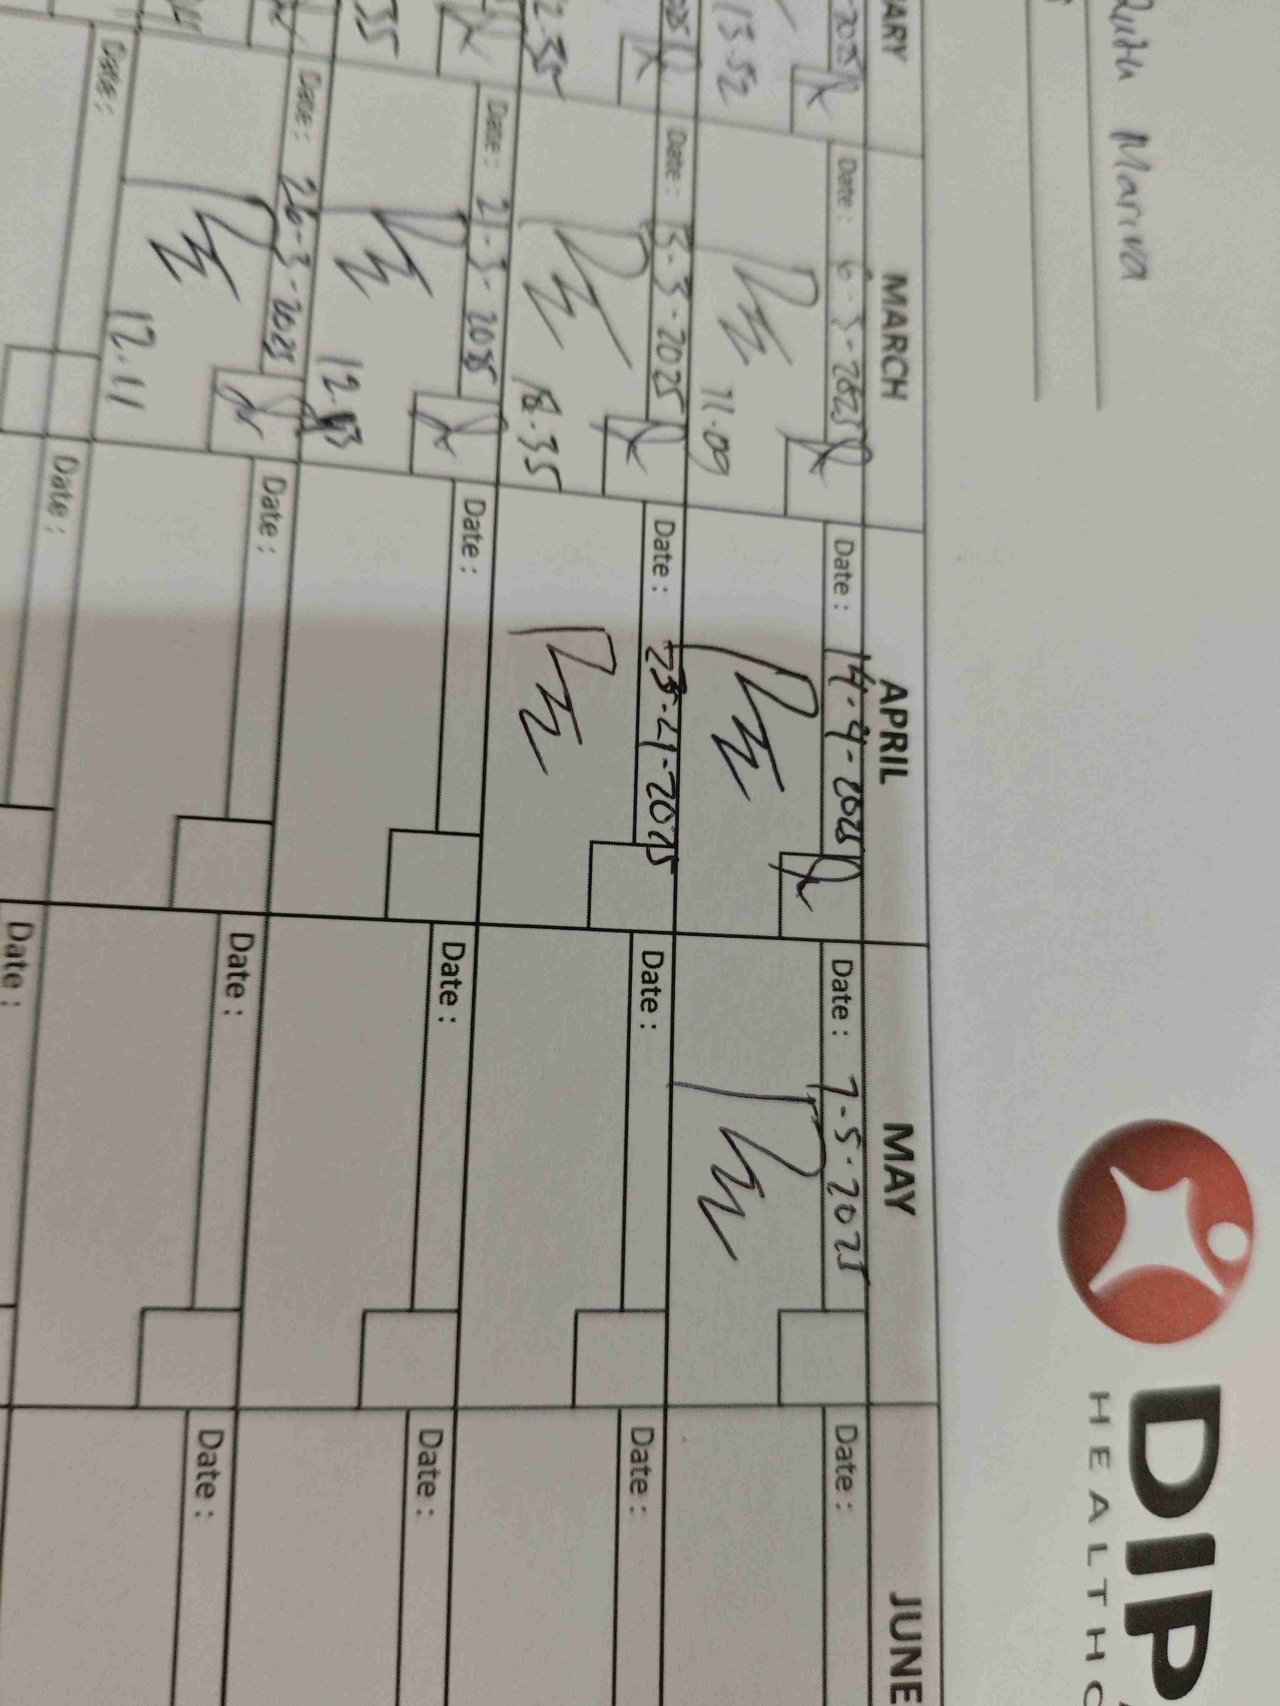 DIP
HEALTHC
Mariva
MARCH
APRIL
MAY
JUNE
Date: 6-3-2025
11.09
Date: 14-4-2025
Date: 7-5-2025
Date:
13.52
Date: 3-3-2025
18.35
Date: 23-4-2025
Date:
Date:
Date: 21-3-2025
Date:
Date:
Date:
Date: 26-3-2025
12.11
Date:
Date:
Date:
Date:
Date:
Date: